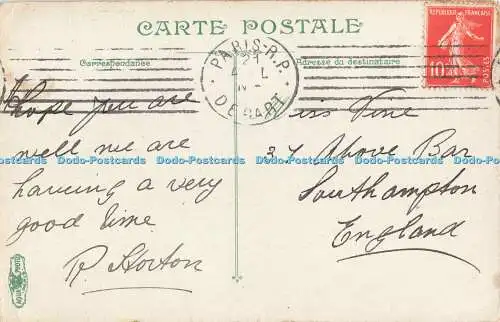 CARTE POSTALE
Correspondance
Adresse du destinataire
PARIS-R.P.
DEPART
REPUBLIQUE FRANÇAISE
10
POSTES
Hope you are
well we are
having a very
good time
R Horton
iss Vine
34 Above Bar
Southampton
England
Dodo-Postcards Dodo-Postcards Dodo-Postcards Dodo-Postcards Dodo-Postcards